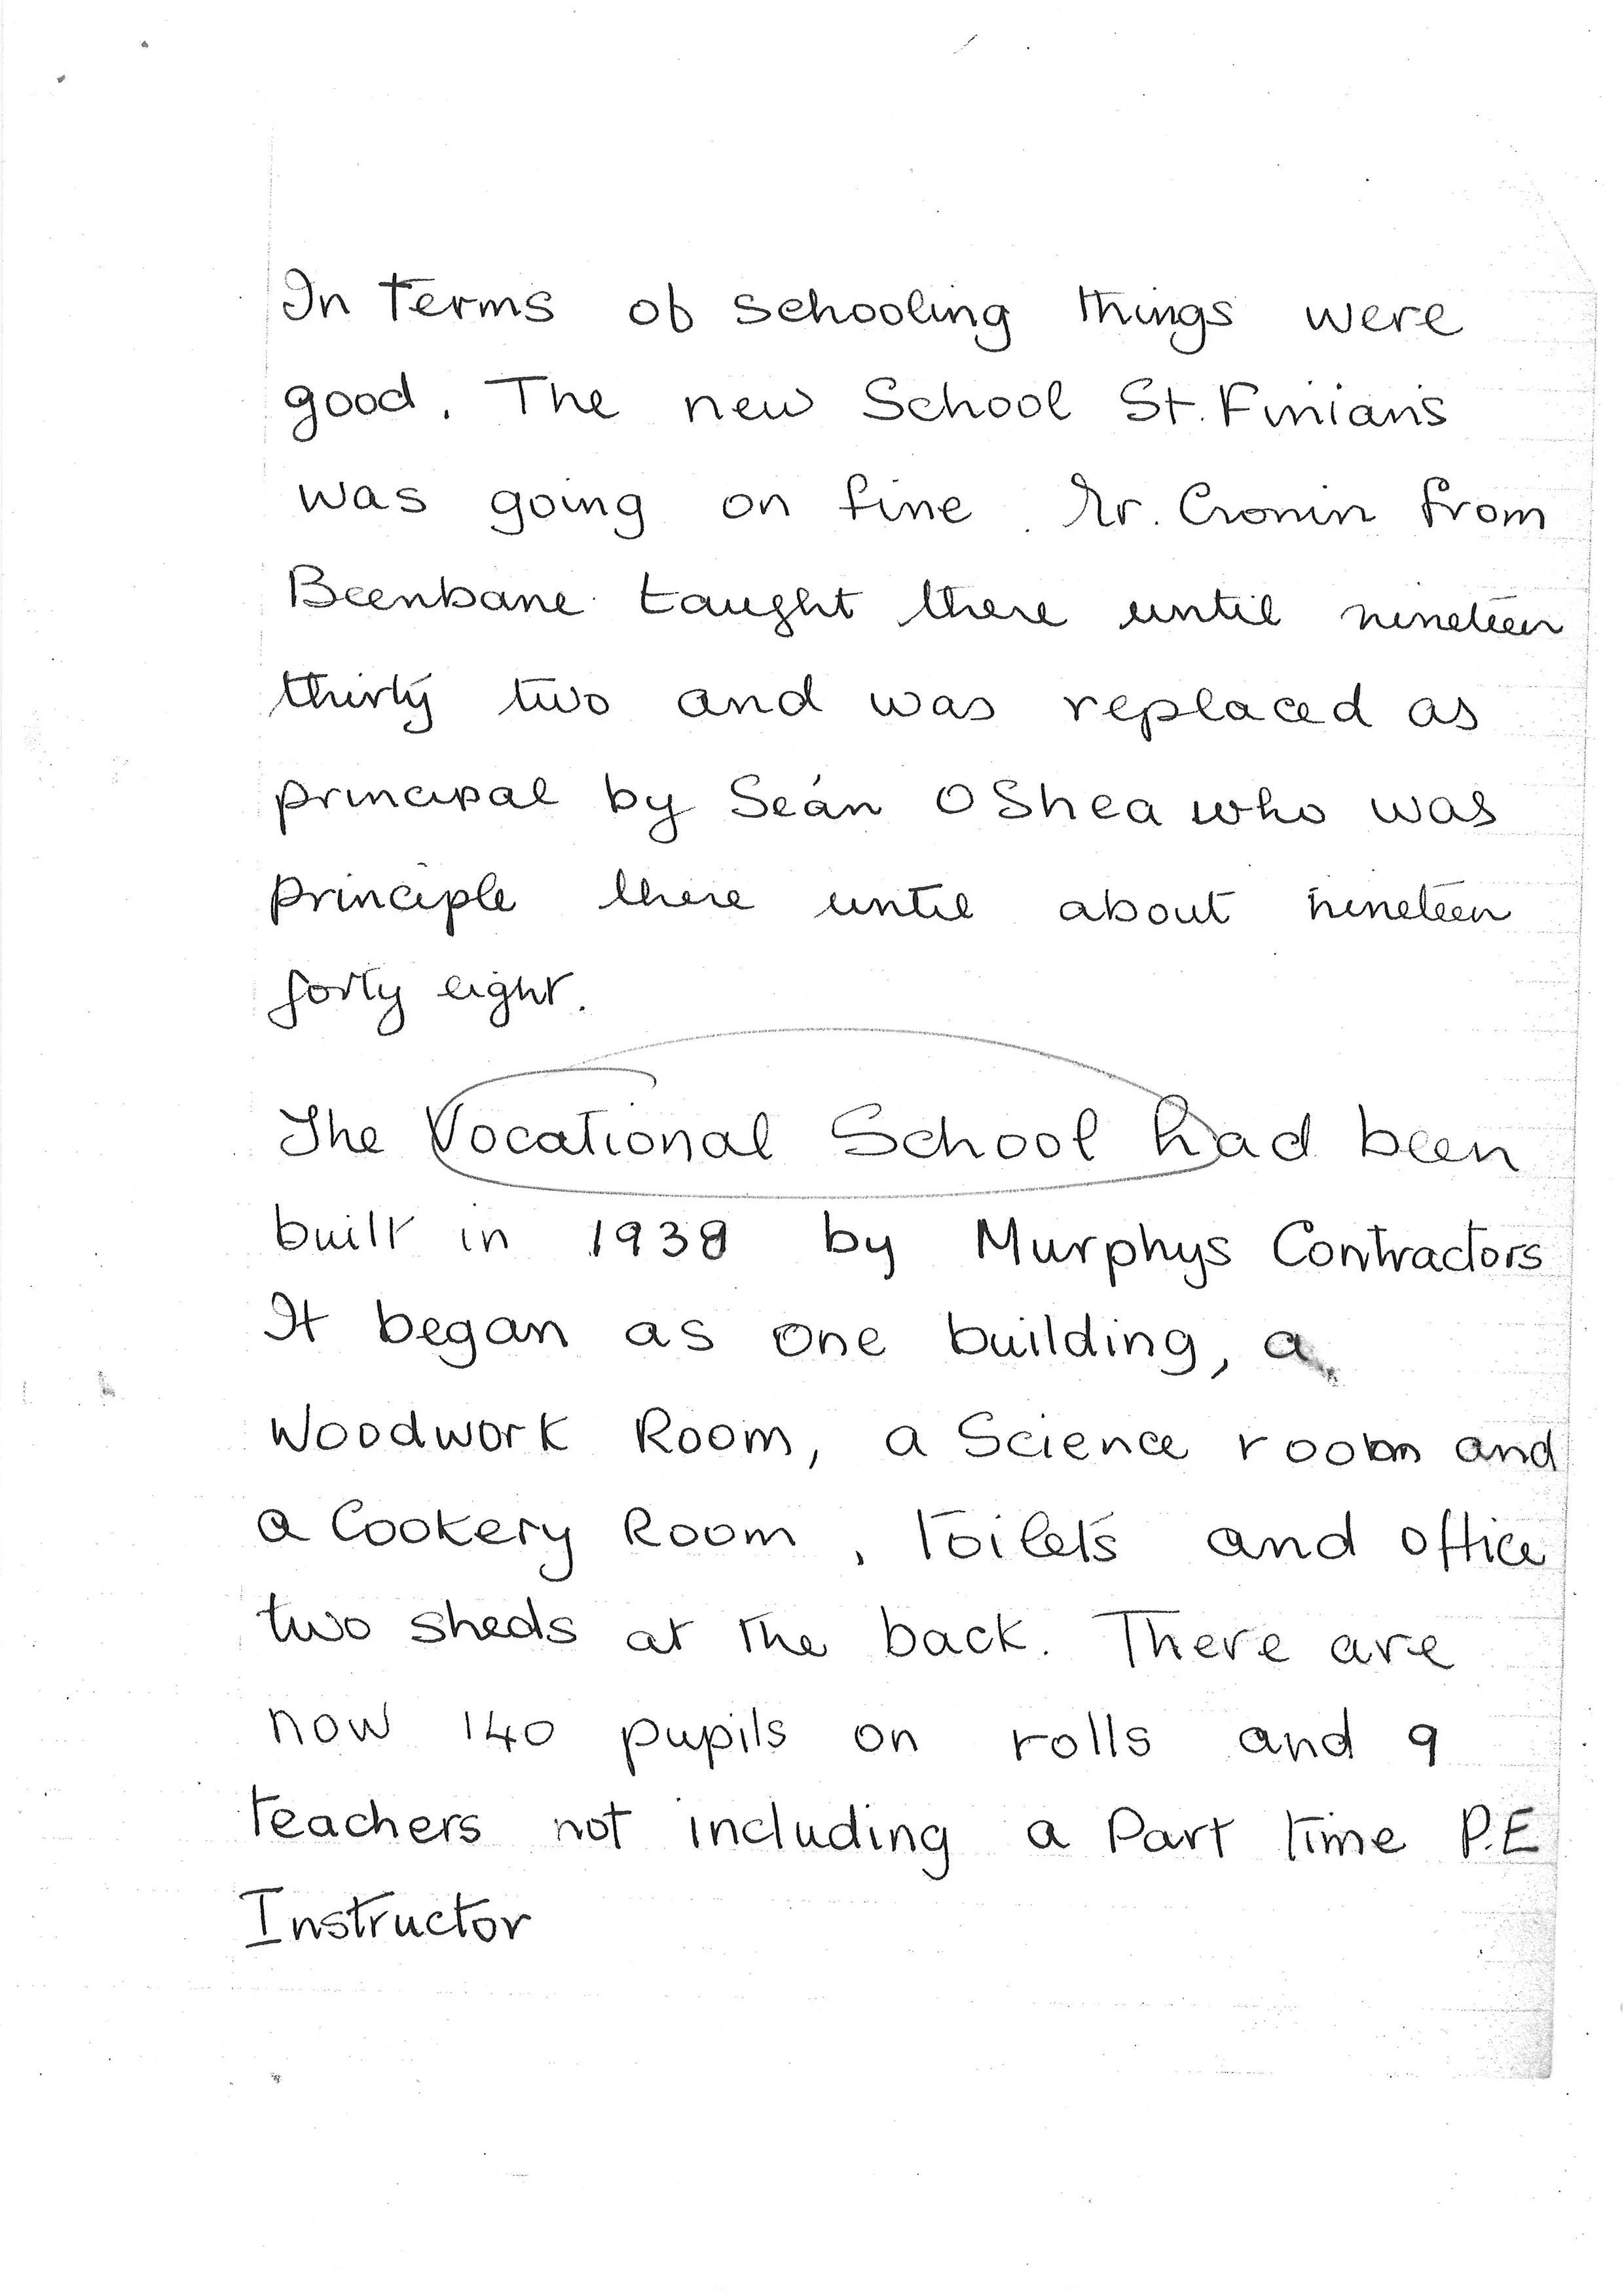 In terms of schooling things were
good. The new School St. Finian's
was going on fine. Mr. Cronin from
Beenbane taught there until nineteen
thirty two and was replaced as
principal by Seán O Shea who was
principle there until about nineteen
forty eight.
The Vocational School had been
built in 1938 by Murphys Contractors
It began as one building, a
Woodwork Room, a Science room and
a Cookery Room, toilets and office
two sheds at the back. There are
now 140 pupils on rolls and 9
teachers not including a Part time P.E
Instructor